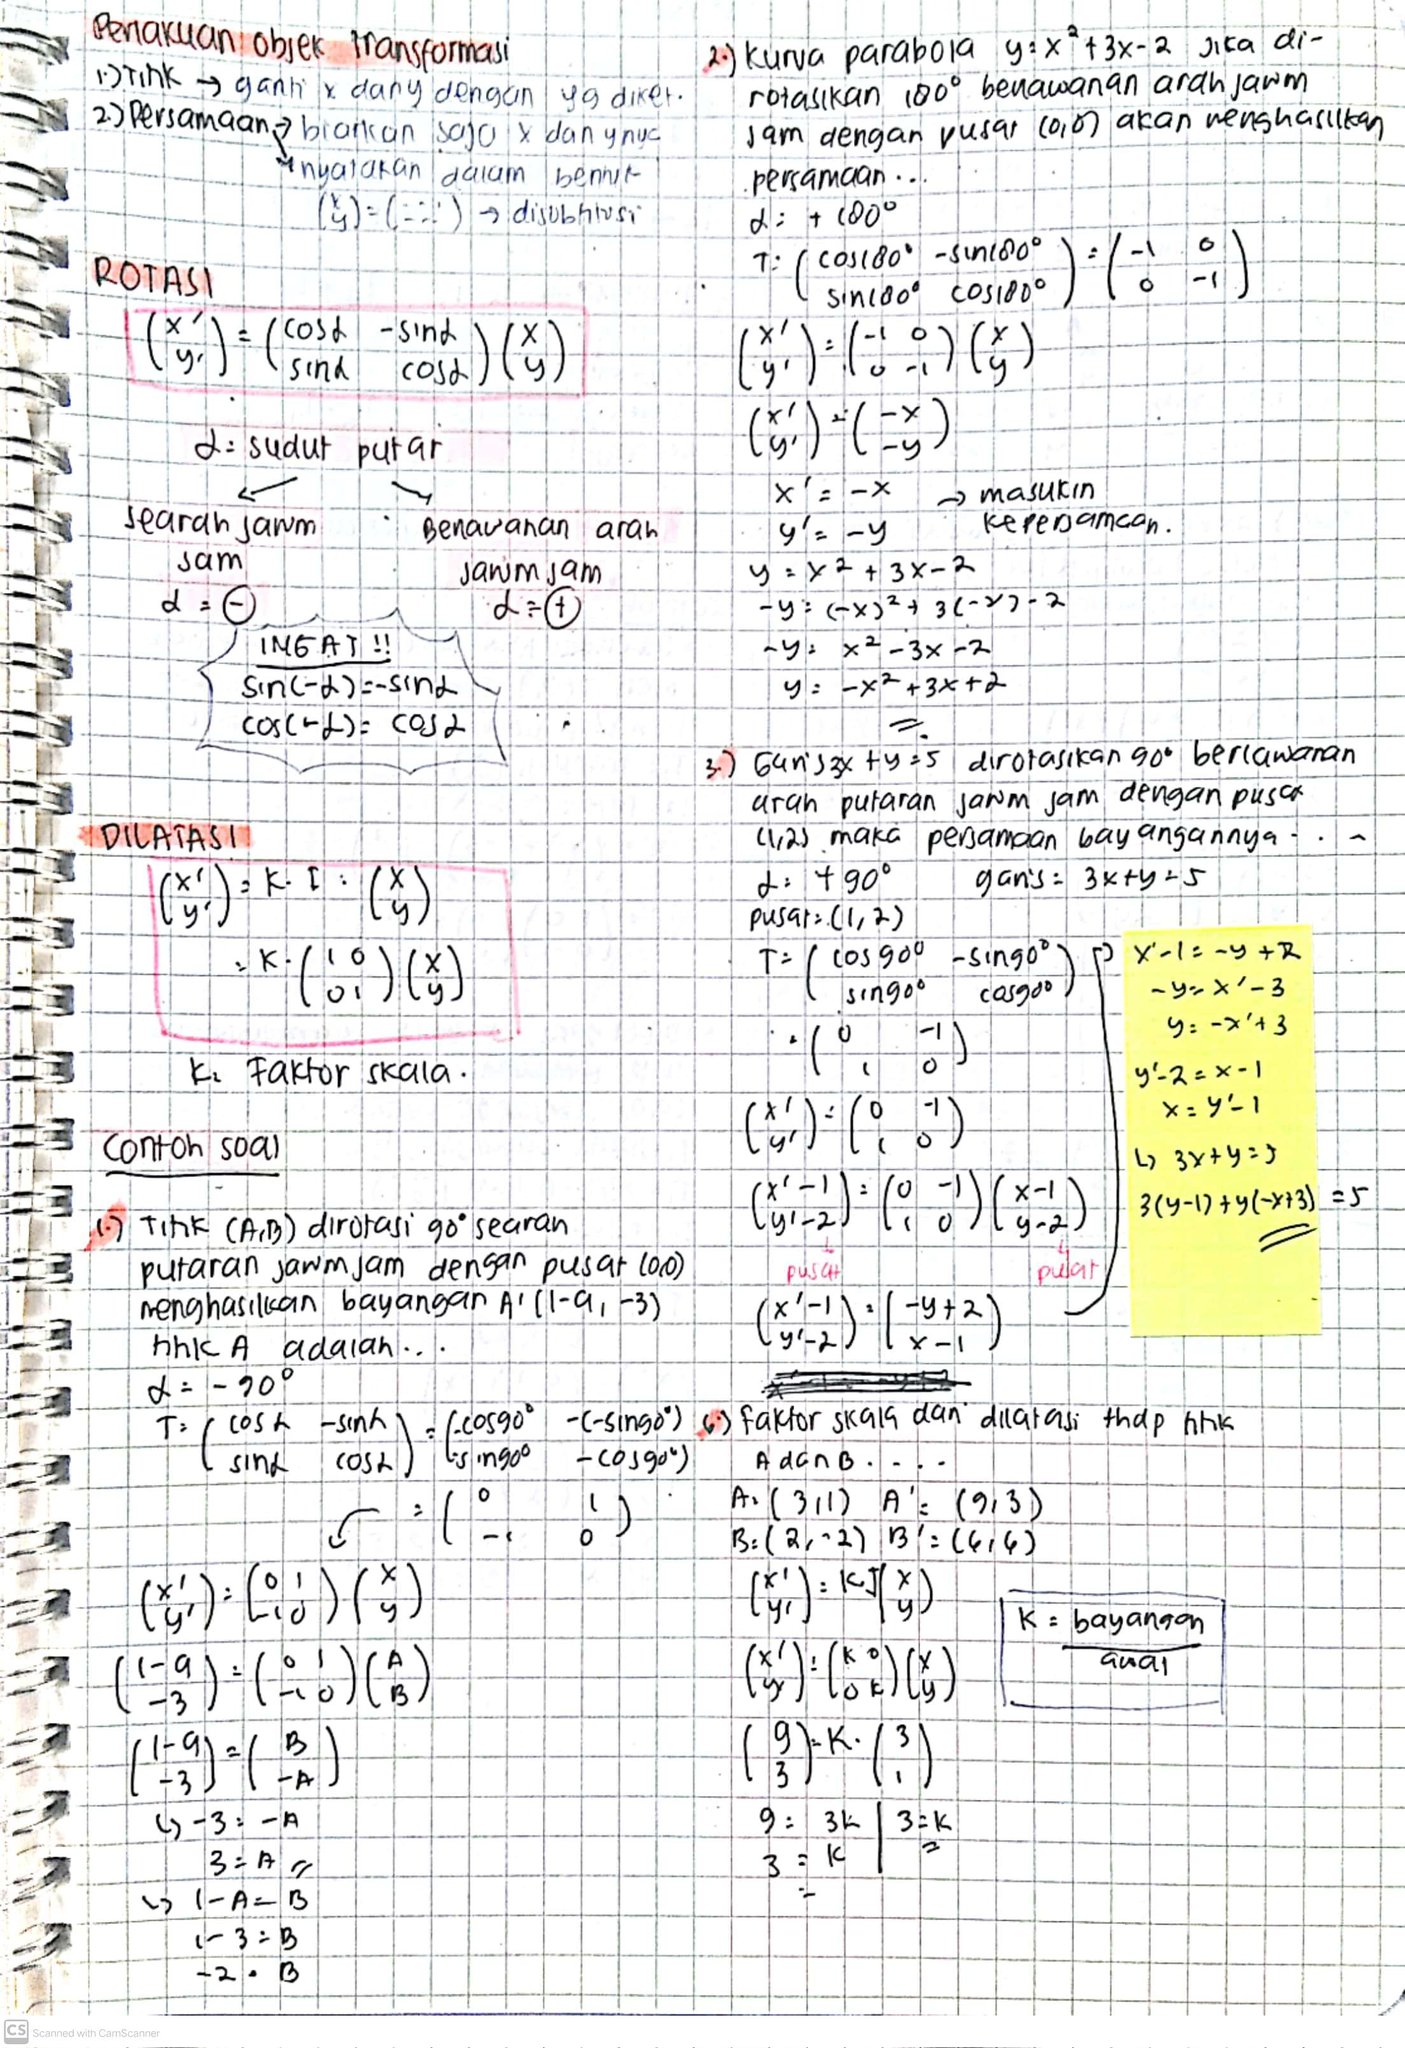 Penakuan objek transformasi
1.) Titik → ganti x dan y dengan yg diket.
2.) Persamaan → biarkan saja x dan y nya
→ nyatakan dalam bentuk
(x y) = (-:-:) → disubtitusi
ROTASI
(x' y') = (cosα -sinα sinα cosα) (x y)
α = sudut putar
searah jarum jam
α = (-)
Berlawanan arah jarum jam
α = (+)
INGAT !!
sin(-α) = -sinα
cos(-α) = cosα
DILATASI
(x' y') = K. I . (x y)
= K. (1 0 0 1) (x y)
K = Faktor skala.
Contoh soal
1.) Titik (A,B) dirotasi 90° searah
putaran jarum jam dengan pusat (0,0)
menghasilkan bayangan A' (1-a, -3)
titik A adalah...
α = -90°
T = (cosα -sinα sinα cosα) = (-cos90° -(-sin90°) -sin90° -cos90°)
= (0 1 -1 0)
(x' y') = (0 1 -1 0) (x y)
(1-a -3) = (0 1 -1 0) (A B)
(1-a -3) = (B -A)
↳ -3 = -A
3 = A
↳ 1-A = B
1-3 = B
-2 = B
2.) Kurva parabola y = x² + 3x - 2 jika di-
rotasikan 180° berlawanan arah jarum
jam dengan pusat (0,0) akan menghasilkan
persamaan...
α = + 180°
T = (cos180° -sin180° sin180° cos180°) = (-1 0 0 -1)
(x' y') = (-1 0 0 -1) (x y)
(x' y') = (-x -y)
x' = -x → masukin
y' = -y kepersamaan.
y = x² + 3x - 2
-y = (-x)² + 3(-x) - 2
-y = x² - 3x - 2
y = -x² + 3x + 2
3.) Garis 3x + y = 5 dirotasikan 90° berlawanan
arah putaran jarum jam dengan pusat
(1,2) maka persamaan bayangannya...
α = +90° garis = 3x+y=5
pusat = (1,2)
T = (cos90° -sin90° sin90° cos90°)
= (0 -1 1 0)
(x' y') = (0 -1 1 0)
(x'-1 y'-2) = (0 -1 1 0) (x-1 y-2)
pusat pusat
(x'-1 y'-2) = (-y+2 x-1)
x'-1 = -y+2
-y = x'-3
y = -x'+3
y'-2 = x-1
x = y'-1
↳ 3x+y=5
3(y-1)+y(-x+3) = 5
6.) faktor skala dari dilatasi thdp titik
A dan B....
A = (3,1) A' = (9,3)
B = (2,-2) B' = (6,6)
(x' y') = K.I (x y)
(x' y') = (K 0 0 K) (x y)
(9 3) = K. (3 1)
9 = 3K | 3 = K
3 = K
K = bayangan
awal
CS Scanned with CamScanner